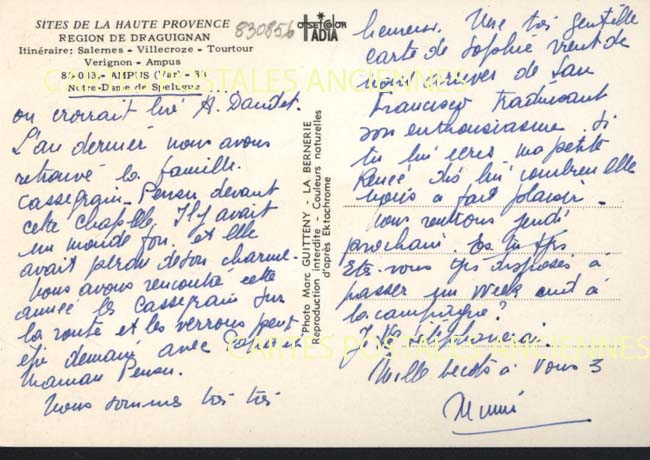 SITES DE LA HAUTE PROVENCE
REGION DE DRAGUIGNAN
Itinéraire: Salernes - Villecroze - Tourtour
Verignon - Ampus
83-043. AMPUS (Var) - 34
Notre-Dame de Spelugue
830856
OFFSETCOLOR
IADIA
on croirait lire A. Daudet.
L'an dernier nous avons
retrouvé la famille
Cassegrain - Pensu devant
cette chapelle. Il y avait
un monde fou. et elle
avait perdu de son charme.
Nous avons rencontré cette
année les Cassegrain sur
la route et les verrons peut
être demain avec Papa et
Maman Pensu.
Nous sommes très très
Photo Marc GUITTENY - LA BERNERIE
Reproduction interdite - Couleurs naturelles
d'après Ektachrome
heureux. Une très gentille
carte de Sophie vient de
nous arriver de San
Francisco traduisant
son enthousiasme si
tu lui écris ma petite
Renée dis lui combien elle
nous a fait plaisir.
Nous rentrons jeudi
prochain.
Etes-vous disposés à
passer un Week end à
la campagne?
Je téléphonerai.
Mille becots à vous 3
CARTES POSTALES ANCIENNES
CARTES POSTALES ANCIENNES